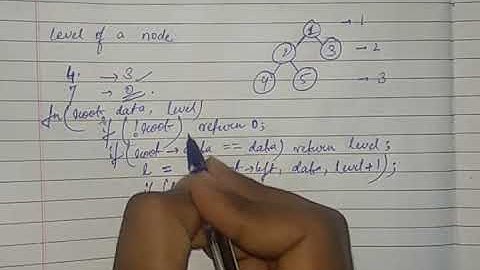 Level of a node.
1 → 1
2 3 → 2
4 5 → 3
4. → 3 ✓
7 → 0
fn(root, data, level)
if (!root) return 0;
if (root → data == data) return level;
l = left, data, level+1);
if